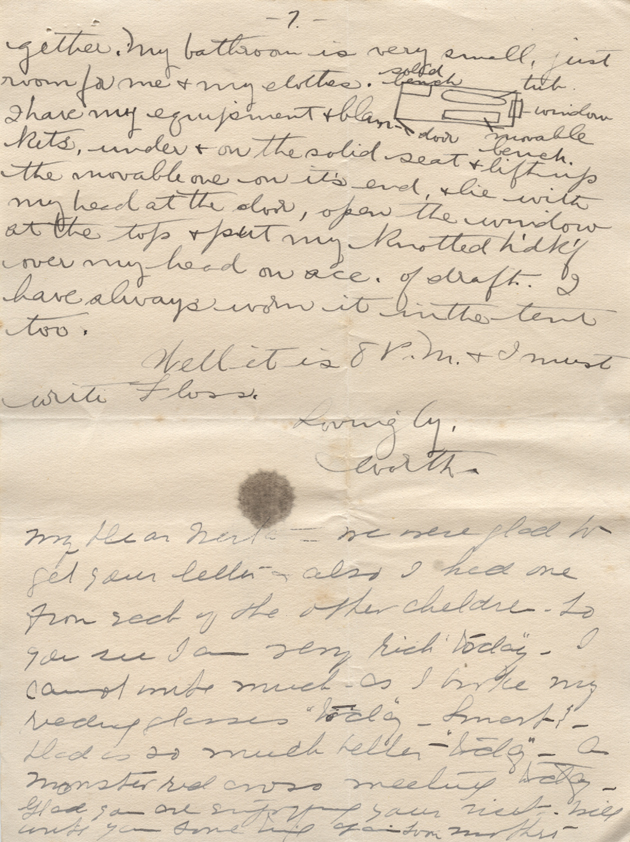 - 7. -
gether. My bathroom is very small, just
room for me & my clothes.
solid
bench
tub.
window
door
movable
bench.
I have my equipment & blan-
kets, under & on the solid seat & lift up
the movable one on it's end, & lie with
my head at the door, open the window
at the top & put my knotted h'dk'f
over my head on acc. of draft. I
have always worn it in the tent
too.
Well it is 8 P.M. & I must
write Floss.
Lovingly,
Worth.
My Dear - we were glad to
get your letter - also I had one
from each of the other children - So
you see I am very rich "today" - I
cannot write much - as I broke my
reading glasses "today" - Smart! -
Dad is so much better - "today" - a
monster red cross meeting today -
Glad you are enjoying your visit. Will
write you some time soon mother